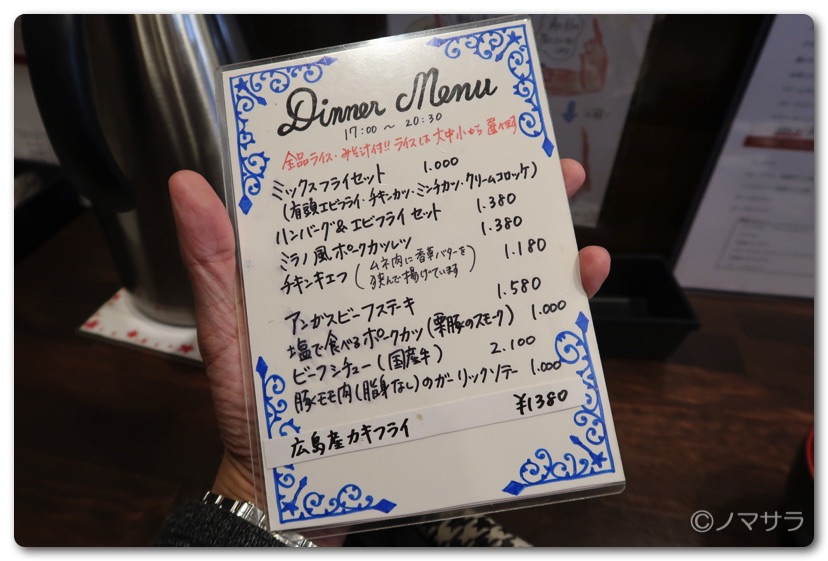 Dinner Menu
17:00 〜 20:30
全品ライス・みそ汁付!! ライスは大中小から選べます
ミックスフライセット 1.000
(有頭エビフライ・チキンカツ・ミンチカツ・クリームコロッケ)
ハンバーグ&エビフライセット 1.380
ミラノ風ポークカツレツ 1.380
チキンキエフ (ムネ肉に香草バターを挟んで揚げています) 1.180
アンガスビーフステーキ 1.580
塩で食べるポークカツ(栗豚のスモーク) 1.000
ビーフシチュー(国産牛) 2.100
豚モモ肉(脂身なし)のガーリックソテー 1.000
広島産カキフライ ¥1380
©ノマサラ